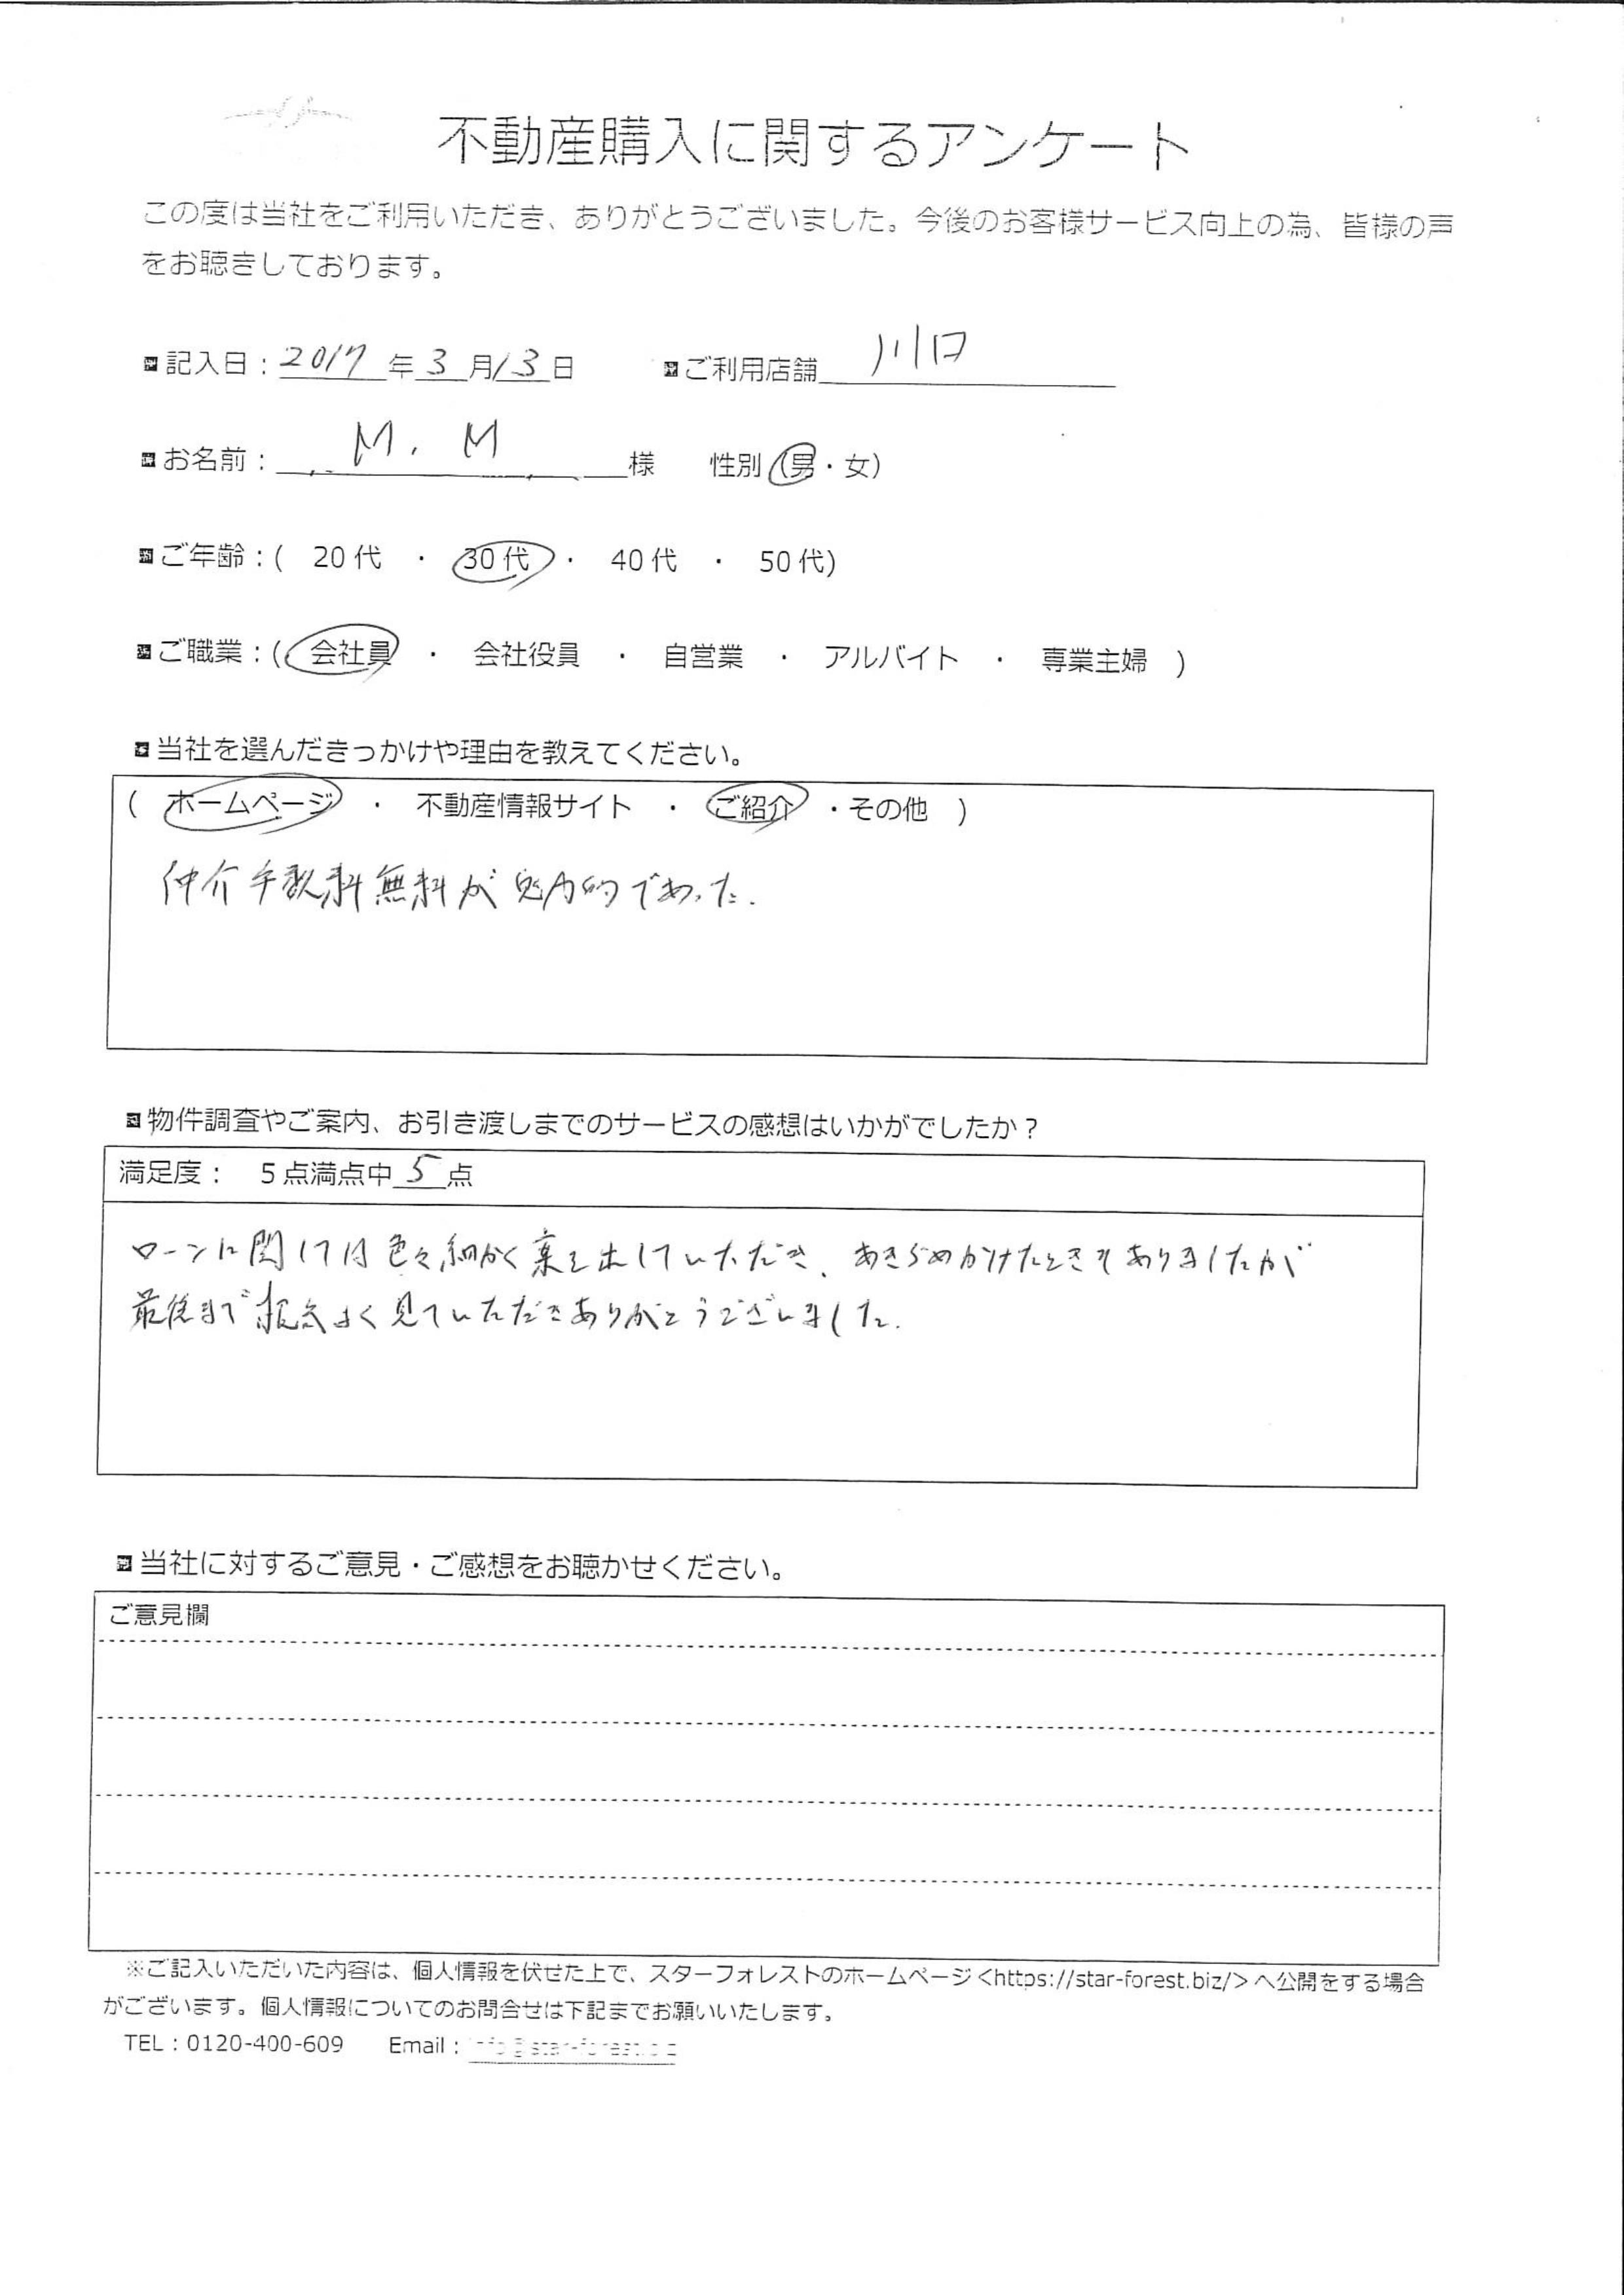 不動産購入に関するアンケート
この度は当社をご利用いただき、ありがとうございました。今後のお客様サービス向上の為、皆様の声
をお聴きしております。
記入日：2017年3月13日 ご利用店舗 川口
お名前： M. M 様 性別（男・女）
ご年齢：( 20代 ・ 30代 ・ 40代 ・ 50代)
ご職業：( 会社員 ・ 会社役員 ・ 自営業 ・ アルバイト ・ 専業主婦 )
当社を選んだきっかけや理由を教えてください。
( ホームページ ・ 不動産情報サイト ・ ご紹介 ・その他 )
仲介手数料無料が魅力的であった.
物件調査やご案内、お引き渡しまでのサービスの感想はいかがでしたか？
満足度： 5点満点中 5 点
ローンに関しては色々細かく案を出していただき、あきらめかけたときもありましたが
最後まで よく見ていただきありがとうございました.
当社に対するご意見・ご感想をお聴かせください。
ご意見欄
※ご記入いただいた内容は、個人情報を伏せた上で、スターフォレストのホームページ<https://star-forest.biz/>へ公開をする場合
がございます。個人情報についてのお問合せは下記までお願いいたします。
TEL：0120-400-609 Email：info@star-forest.biz